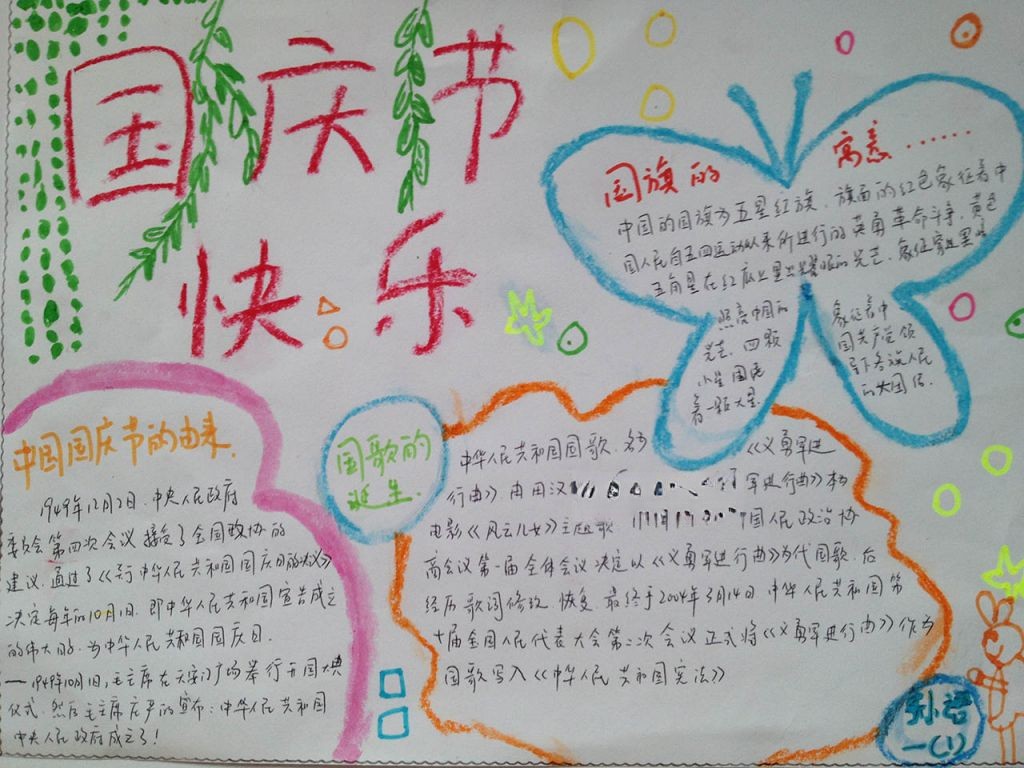 国庆节
快乐
国旗的 寓意……
中国的国旗为五星红旗，旗面的红色象征着中
国人民自五四运动以来所进行的英勇革命斗争，黄色
五角星在红底上呈出耀眼的光芒，象征
照亮中国的
光芒，四颗
小星围绕
着一颗大星
象征着中
国共产党领
导下各族人民
的大团结.
中国国庆节的由来.
1949年12月2日，中央人民政府
委员会第四次会议接受了全国政协的
建议，通过了《关于中华人民共和国国庆日的决议》
决定每年的10月1日，即中华人民共和国宣告成立
的伟大的日，为中华人民共和国国庆日.
—1949年10月1日，毛主席在天安门广场举行开国大典
仪式，然后毛主席庄严的宣布：中华人民共和国
中央人民政府成立了！
国歌的
诞生.
中华人民共和国国歌，名为《义勇军进
行曲》，由田汉 军进行曲》本为
电影《风云儿女》主题歌 国人民政治协
商会议第一届全体会议决定以《义勇军进行曲》为代国歌，后
经历歌词修改、恢复，最终于2004年3月14日，中华人民共和国第
十届全国人民代表大会第二次会议正式将《义勇军进行曲》作为
国歌写入《中华人民共和国宪法》
外语
一(1)